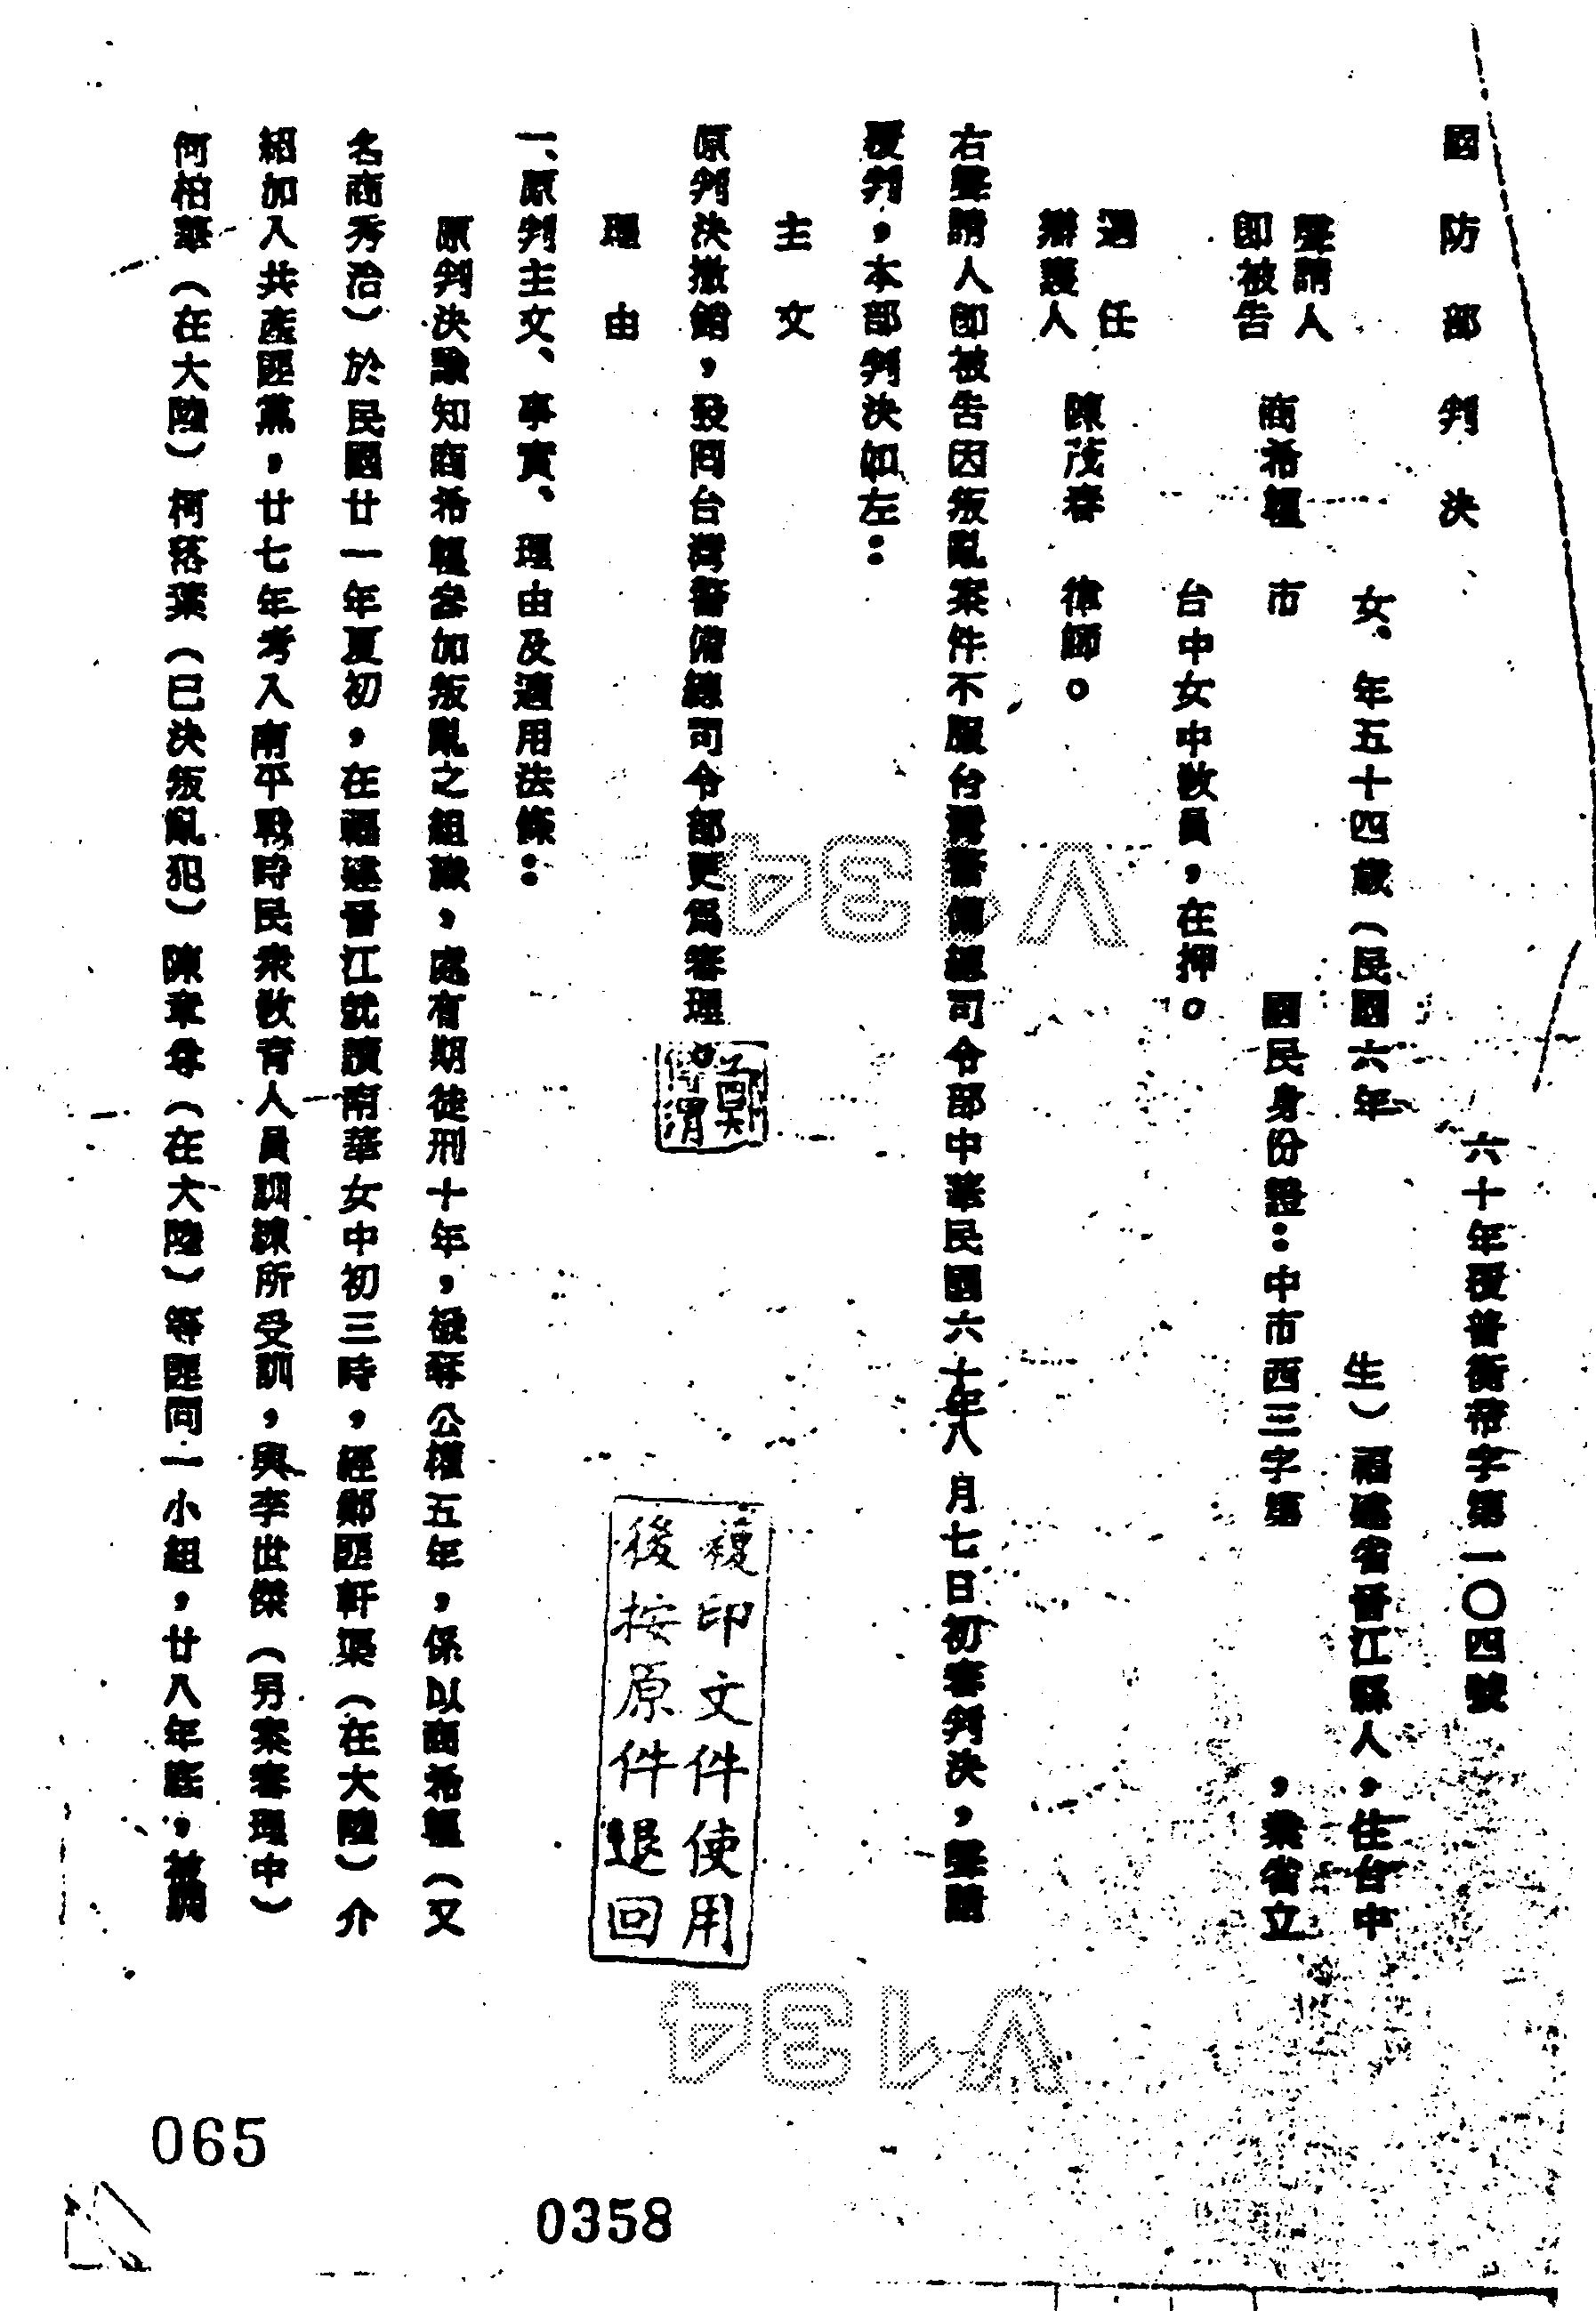 國防部判決
六十年覆普衡帝字第一〇四號
聲請人
即被告
商希糧
女、年五十四歲（民國六年 生）福建省晉江縣人，住台中
市 國民身份證：中市西三字第 ，業省立
台中女中敎員，在押。
選任
辯護人
陳茂春 律師。
右聲請人即被告因叛亂案件不服台灣警備總司令部中華民國六十年八月七日初審判決，聲請
覆判，本部判決如左：
主文
原判決撤銷，發回台灣警備總司令部更爲審理。
理由
一、原判主文、事實、理由及適用法條：
原判決諭知商希糧參加叛亂之組織，處有期徒刑十年，褫奪公權五年，係以商希糧（又
名商秀治）於民國廿一年夏初，在福建晉江就讀南華女中初三時，經鄭匪軒渠（在大陸）介
紹加入共產匪黨，廿七年考入南平戰時民衆敎育人員訓練所受訓，與李世傑（另案審理中）
何柏華（在大陸）柯落葉（已決叛亂犯）陳章尋（在大陸）等匪同一小組，廿八年底，被調
複印文件使用
後按原件退回
V134
V134
065
0358